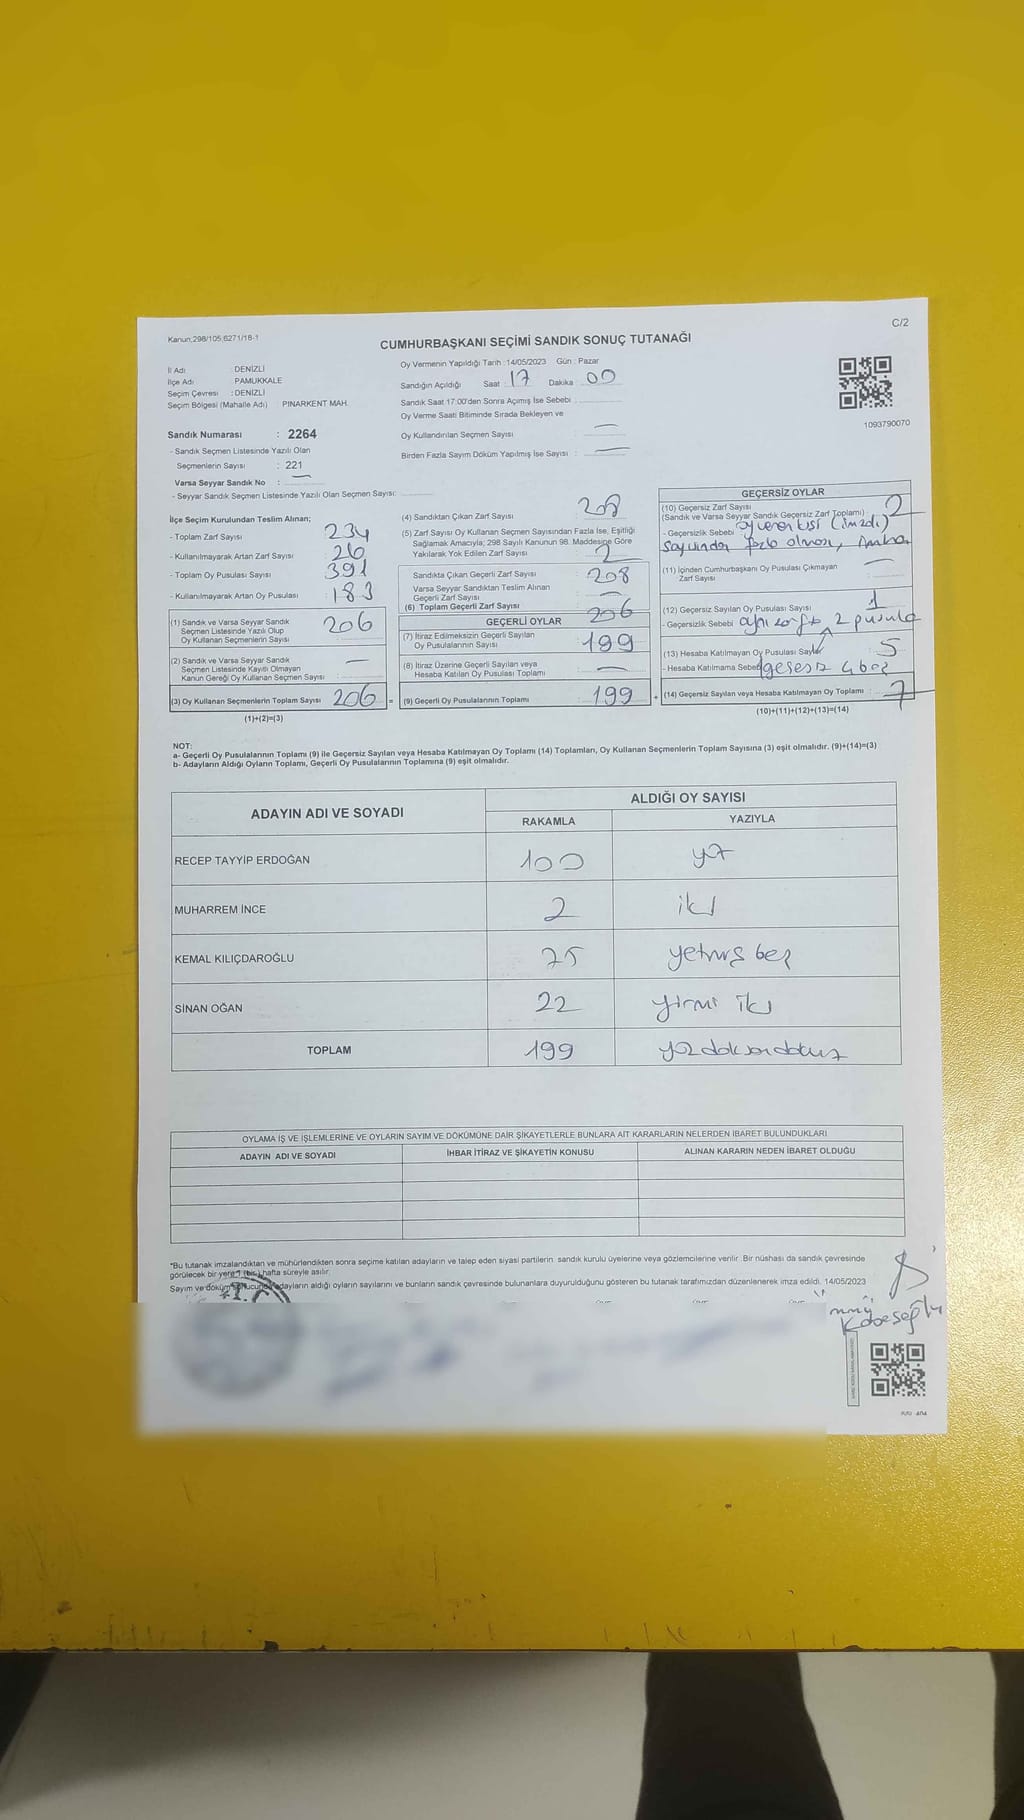 Kanun:298/105,6271/18-1
C/2
CUMHURBAŞKANI SEÇİMİ SANDIK SONUÇ TUTANAĞI
İl Adı : DENİZLİ
İlçe Adı : PAMUKKALE
Seçim Çevresi : DENİZLİ
Seçim Bölgesi (Mahalle Adı) PINARKENT MAH.
Sandık Numarası : 2264
- Sandık Seçmen Listesinde Yazılı Olan
Seçmenlerin Sayısı : 221
Varsa Seyyar Sandık No : —
- Seyyar Sandık Seçmen Listesinde Yazılı Olan Seçmen Sayısı:
Oy Vermenin Yapıldığı Tarih : 14/05/2023 Gün : Pazar
Sandığın Açıldığı Saat : 17 Dakika : 00
Sandık Saat 17.00'den Sonra Açımış İse Sebebi :
Oy Verme Saati Bitiminde Sırada Bekleyen ve
Oy Kullandırılan Seçmen Sayısı : —
Birden Fazla Sayım Döküm Yapılmış İse Sayısı : —
1093790070
İlçe Seçim Kurulundan Teslim Alınan;
- Toplam Zarf Sayısı : 234
- Kullanılmayarak Artan Zarf Sayısı : 26
- Toplam Oy Pusulası Sayısı : 391
- Kullanılmayarak Artan Oy Pusulası : 183
(1) Sandık ve Varsa Seyyar Sandık
Seçmen Listesinde Yazılı Olup
Oy Kullanan Seçmenlerin Sayısı : 206
(2) Sandık ve Varsa Seyyar Sandık
Seçmen Listesinde Kayıtlı Olmayan
Kanun Gereği Oy Kullanan Seçmen Sayısı : —
(3) Oy Kullanan Seçmenlerin Toplam Sayısı 206 =
(1)+(2)=(3)
(4) Sandıktan Çıkan Zarf Sayısı : 208
(5) Zarf Sayısı Oy Kullanan Seçmen Sayısından Fazla İse, Eşitliği
Sağlamak Amacıyla; 298 Sayılı Kanunun 98. Maddesine Göre
Yakılarak Yok Edilen Zarf Sayısı : 2
Sandıkta Çıkan Geçerli Zarf Sayısı : 208
Varsa Seyyar Sandıktan Teslim Alınan
Geçerli Zarf Sayısı : —
(6) Toplam Geçerli Zarf Sayısı : 206
GEÇERLİ OYLAR
(7) İtiraz Edilmeksizin Geçerli Sayılan
Oy Pusulalarının Sayısı : 199
(8) İtiraz Üzerine Geçerli Sayılan veya
Hesaba Katılan Oy Pusulası Toplamı : —
(9) Geçerli Oy Pusulalarının Toplamı : 199 +
GEÇERSİZ OYLAR
(10) Geçersiz Zarf Sayısı
(Sandık ve Varsa Seyyar Sandık Geçersiz Zarf Toplamı) : 2
- Geçersizlik Sebebi : oy veren kişi (imzalı)
sayısından fazla olması,
(11) İçinden Cumhurbaşkanı Oy Pusulası Çıkmayan
Zarf Sayısı : —
(12) Geçersiz Sayılan Oy Pusulası Sayısı : 1
- Geçersizlik Sebebi aynı zarfta 2 pusula
(13) Hesaba Katılmayan Oy Pusulası Sayısı 5
- Hesaba Katılmama Sebebi
(14) Geçersiz Sayılan veya Hesaba Katılmayan Oy Toplamı : 7
(10)+(11)+(12)+(13)=(14)
NOT:
a- Geçerli Oy Pusulalarının Toplamı (9) ile Geçersiz Sayılan veya Hesaba Katılmayan Oy Toplamı (14) Toplamları, Oy Kullanan Seçmenlerin Toplam Sayısına (3) eşit olmalıdır. (9)+(14)=(3)
b- Adayların Aldığı Oyların Toplamı, Geçerli Oy Pusulalarının Toplamına (9) eşit olmalıdır.
ADAYIN ADI VE SOYADI ALDIĞI OY SAYISI
RAKAMLA YAZIYLA
RECEP TAYYİP ERDOĞAN 100 yüz
MUHARREM İNCE 2 iki
KEMAL KILIÇDAROĞLU 75 yetmiş beş
SİNAN OĞAN 22 yirmi iki
TOPLAM 199 yüz doksan dokuz
OYLAMA İŞ VE İŞLEMLERİNE VE OYLARIN SAYIM VE DÖKÜMÜNE DAİR ŞİKAYETLERLE BUNLARA AİT KARARLARIN NELERDEN İBARET BULUNDUKLARI
ADAYIN ADI VE SOYADI İHBAR İTİRAZ VE ŞİKAYETİN KONUSU ALINAN KARARIN NEDEN İBARET OLDUĞU
*Bu tutanak imzalandıktan ve mühürlendikten sonra seçime katılan adayların ve talep eden siyasi partilerin sandık kurulu üyelerine veya gözlemcilerine verilir. Bir nüshası da sandık çevresinde
görülecek bir yere 1 (bir) hafta süreyle asılır.
Sayım ve döküm sonucunda adayların aldığı oyların sayılarını ve bunların sandık çevresinde bulunanlara duyurulduğunu gösteren bu tutanak tarafımızdan düzenlenerek imza edildi. 14/05/2023
T.C.